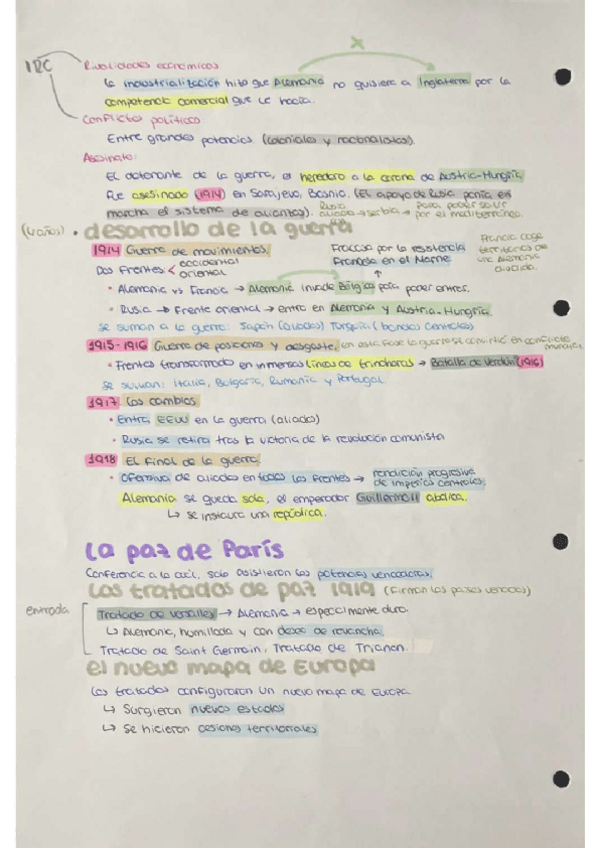 IRC
Rivalidades económicos
La industrialitación hito que Alemania no quisiera a Inglaterra por la
competencia comercial que le hacía.
Conflictos políticos
Entre grandes potencias (coloniales y nacionalistas).
Asesinato:
El detonante de la guerra, el heredero a la corona de Austria-Hungría
Fue asesinado (1914) en Sarajevo, Bosnia. (El apoyo de Rusia ponía en
marcha el sistema de aliantas).
Rusia aliada → Serbia → para poder salir por el mediterráneo.
(4 años) • desarrollo de la guerra
1914 Guerra de movimientos.
Fracaso por la resistencia
Francesa en el Marne
Francia coge territorios de una Alemania
Dos frentes: < occidental
oriental
• Alemania vs Francia → Alemania invade Bélgica para poder entrar.
• Rusia → Frente oriental → entra en Alemania y Austria-Hungría.
Se suman a la guerra: Japón (aliados) Turquía (bandos centrales)
1915-1916 Guerra de posiciones y desgaste, en esta fase la guerra se convirtió en conflicto mundial
• Frentes transformado en inmensas líneas de trincheras → Batalla de Verdún (1916)
Se suman: Italia, Bulgaria, Rumania y Portugal.
1917 Los cambios
• Entra EEUU en la guerra (aliados)
• Rusia se retira tras la victoria de la revolución comunista
1918 El final de la guerra.
• Ofensiva de aliados en todos los frentes → rendición progresiva
de imperios centrales.
Alemania se queda sola, el emperador Guillermo II abdica.
↳ se instaura una república.
La paz de París
Conferencia a la cual, solo asistieron las potencias vencedoras.
Los tratados de paz 1919 (Firman los países vencidos)
Tratado de Versalles → Alemania → especialmente duro.
↳ Alemania, humillada y con deseo de revancha.
Tratado de Saint Germain, Tratado de Trianon.
el nuevo mapa de Europa
Los tratados configuraron un nuevo mapa de Europa
↳ Surgieron nuevos estados
↳ Se hicieron cesiones territoriales